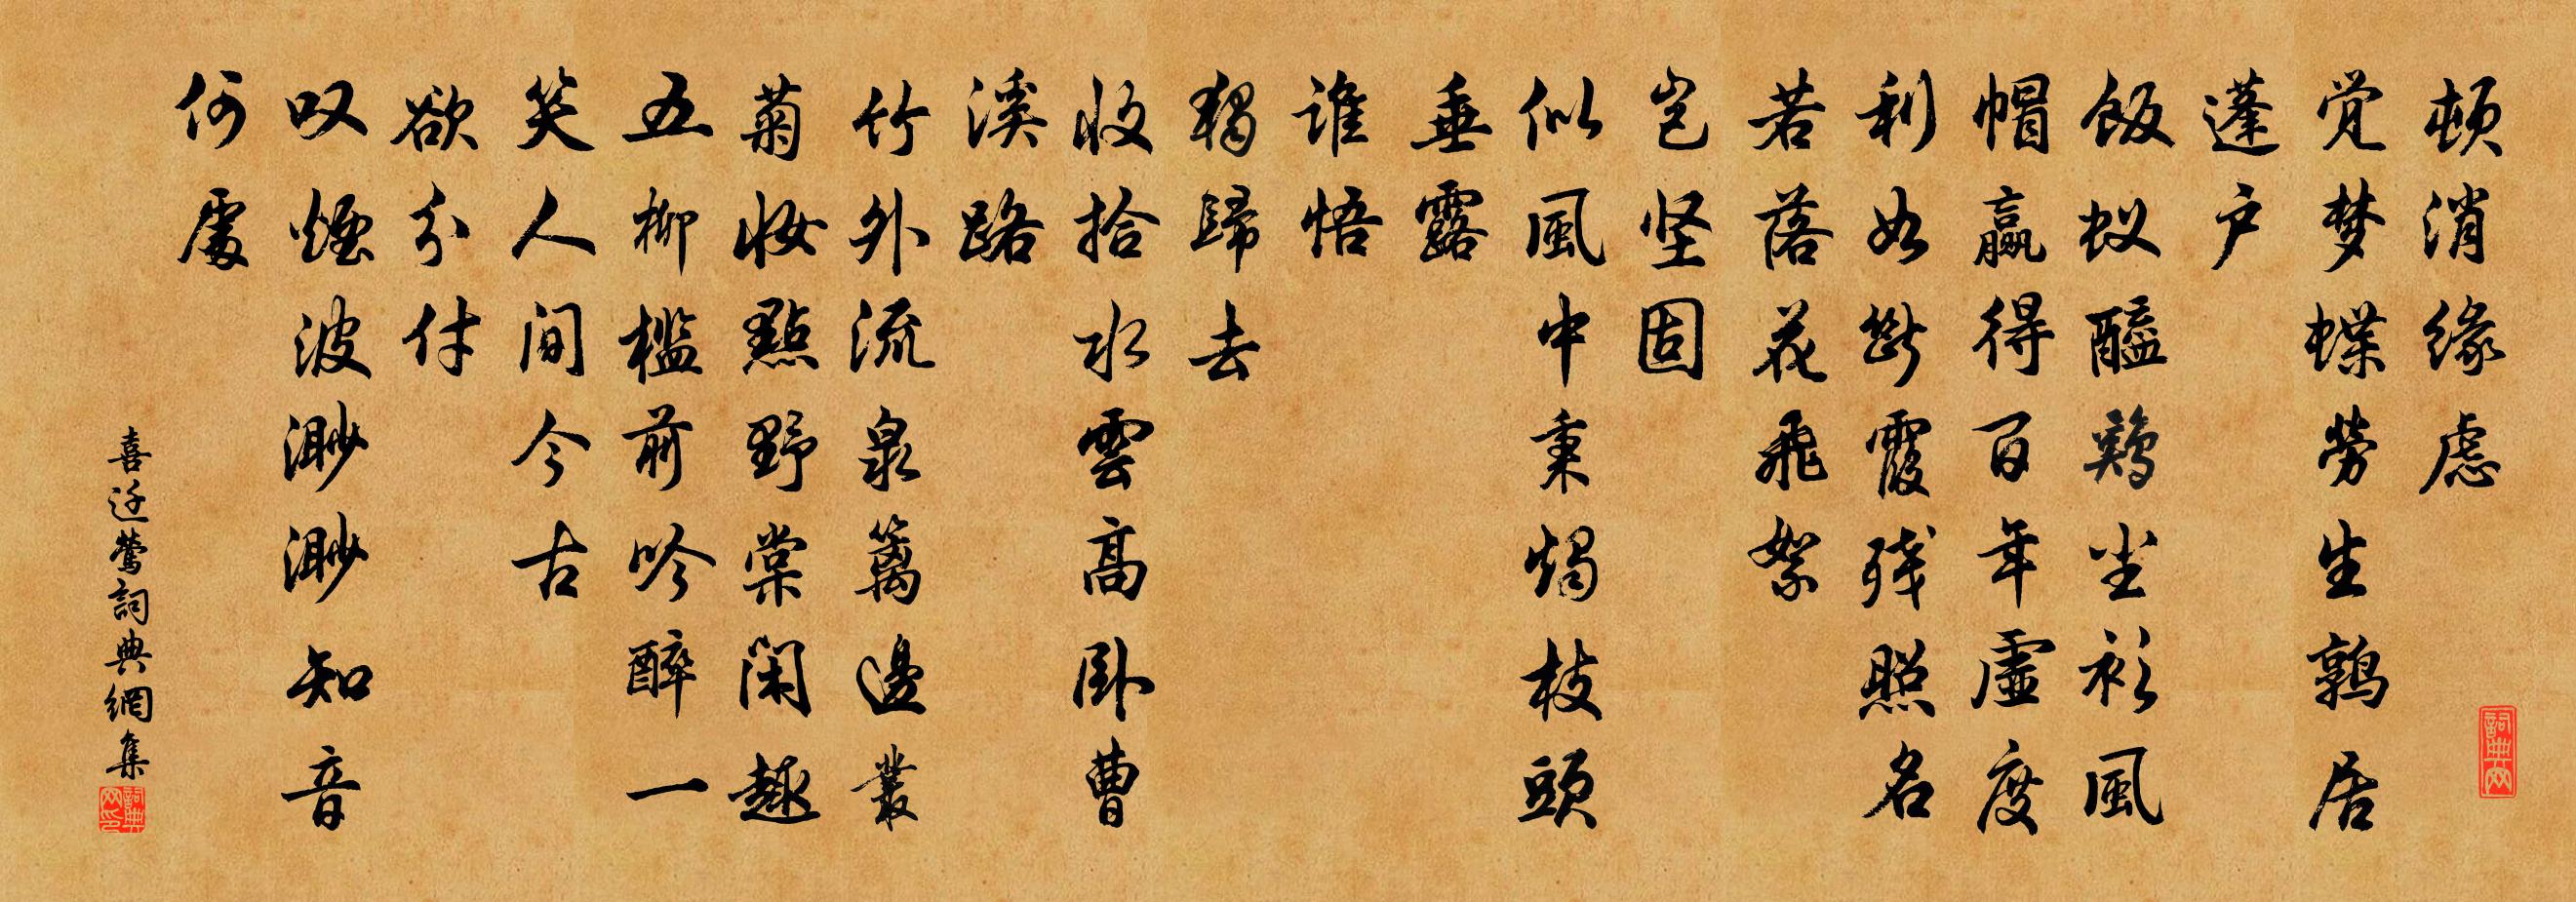 顿消缘虑
觉梦蝶劳生鹑居
蓬户
饭蚁醯鸡尘衫風
帽赢得百年虚度
利如断霞残照名
若落花飛絮
岂坚固
似風中秉烛枝頭
垂露
谁悟
独歸去
收拾水雲高卧曹
溪路
竹外流泉篱邊叢
菊妆點野棠闲趣
五柳槛前吟醉一
笑人间今古
欲分付
叹烟波渺渺知音
何處
喜迁莺詞典網集
詞典网
詞典网印